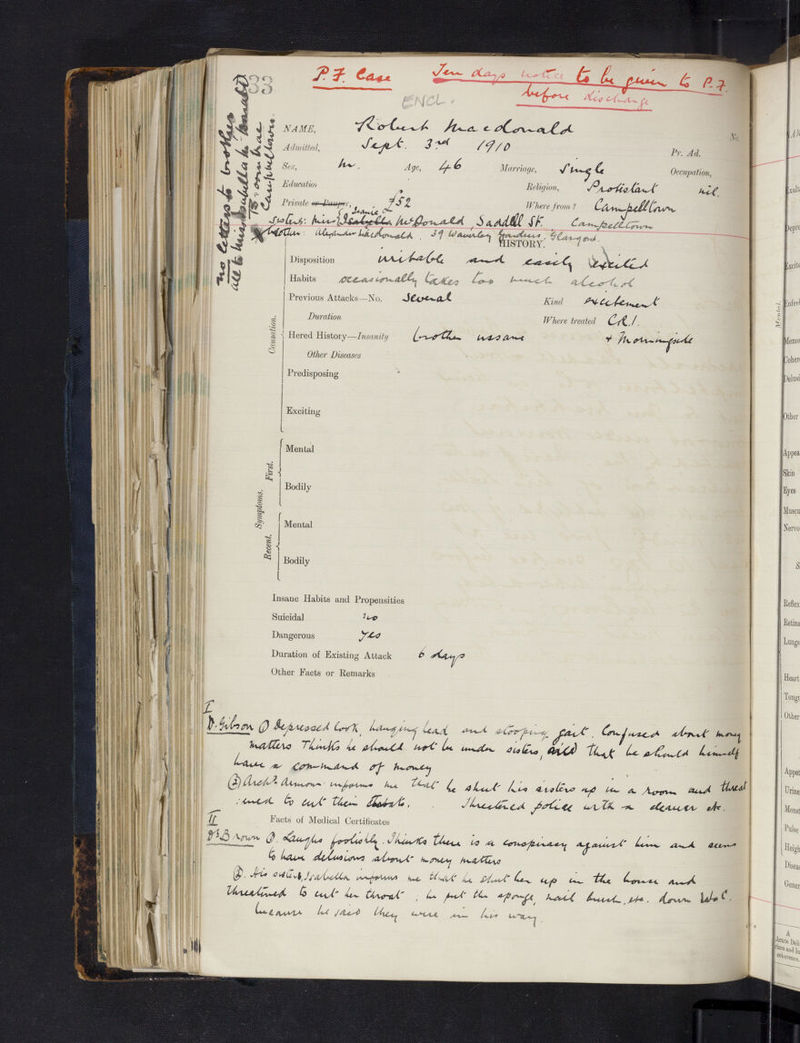 33
P.F. Case Ten days notice to be given to P.F.
before discharge
ENCL.
no letters to brother
all to Miss Isabella McDonald
Campbeltown
NAME, Robert Macdonald No.
Admitted, Sept. 3rd 1910 Pr. Ad.
Sex, M. Age, 46 Marriage, Single Occupation,
Education Religion, Protestant nil.
Private or Pauper, £52 Where from? Campbelltown
Sisters: Miss Isabella McDonald, Saddell St. Campbelltown
brother: Alexander Macdonald, 39 Waverley Gardens, Glasgow.
HISTORY.
Disposition irritable and easily excited
Habits occasionally takes too much alcohol
Previous Attacks—No. Several Kind excitement
Duration Where treated C.R.I.
Hered History—Insanity brother insane + Morningside
Other Diseases
Predisposing
Exciting
Causation.
Mental
First.
Bodily
Symptoms.
Mental
Recent.
Bodily
Insane Habits and Propensities
Suicidal no
Dangerous yes
Duration of Existing Attack 6 days
Other Facts or Remarks
I
Dr. Gibson ① Depressed look, hanging head and stooping gait. Confused about money
matters Thinks he should not be under sisters, and that he should himself
have a command of money
② Archd. Armour informs me that he shut his sisters up in a room and threat
:ened to cut their throats. Threatened police with a cleaver etc.
II Facts of Medical Certificates
Dr. Brown ①. Laughs foolishly. Thinks there is a conspiracy against him and seems
to have delusions about money matters
②. His sister, Isabella informs me that he shut her up in the house and
threatened to cut her throat, he put the sponge, nail brush, etc. down W.C.
because he said they were in his way.